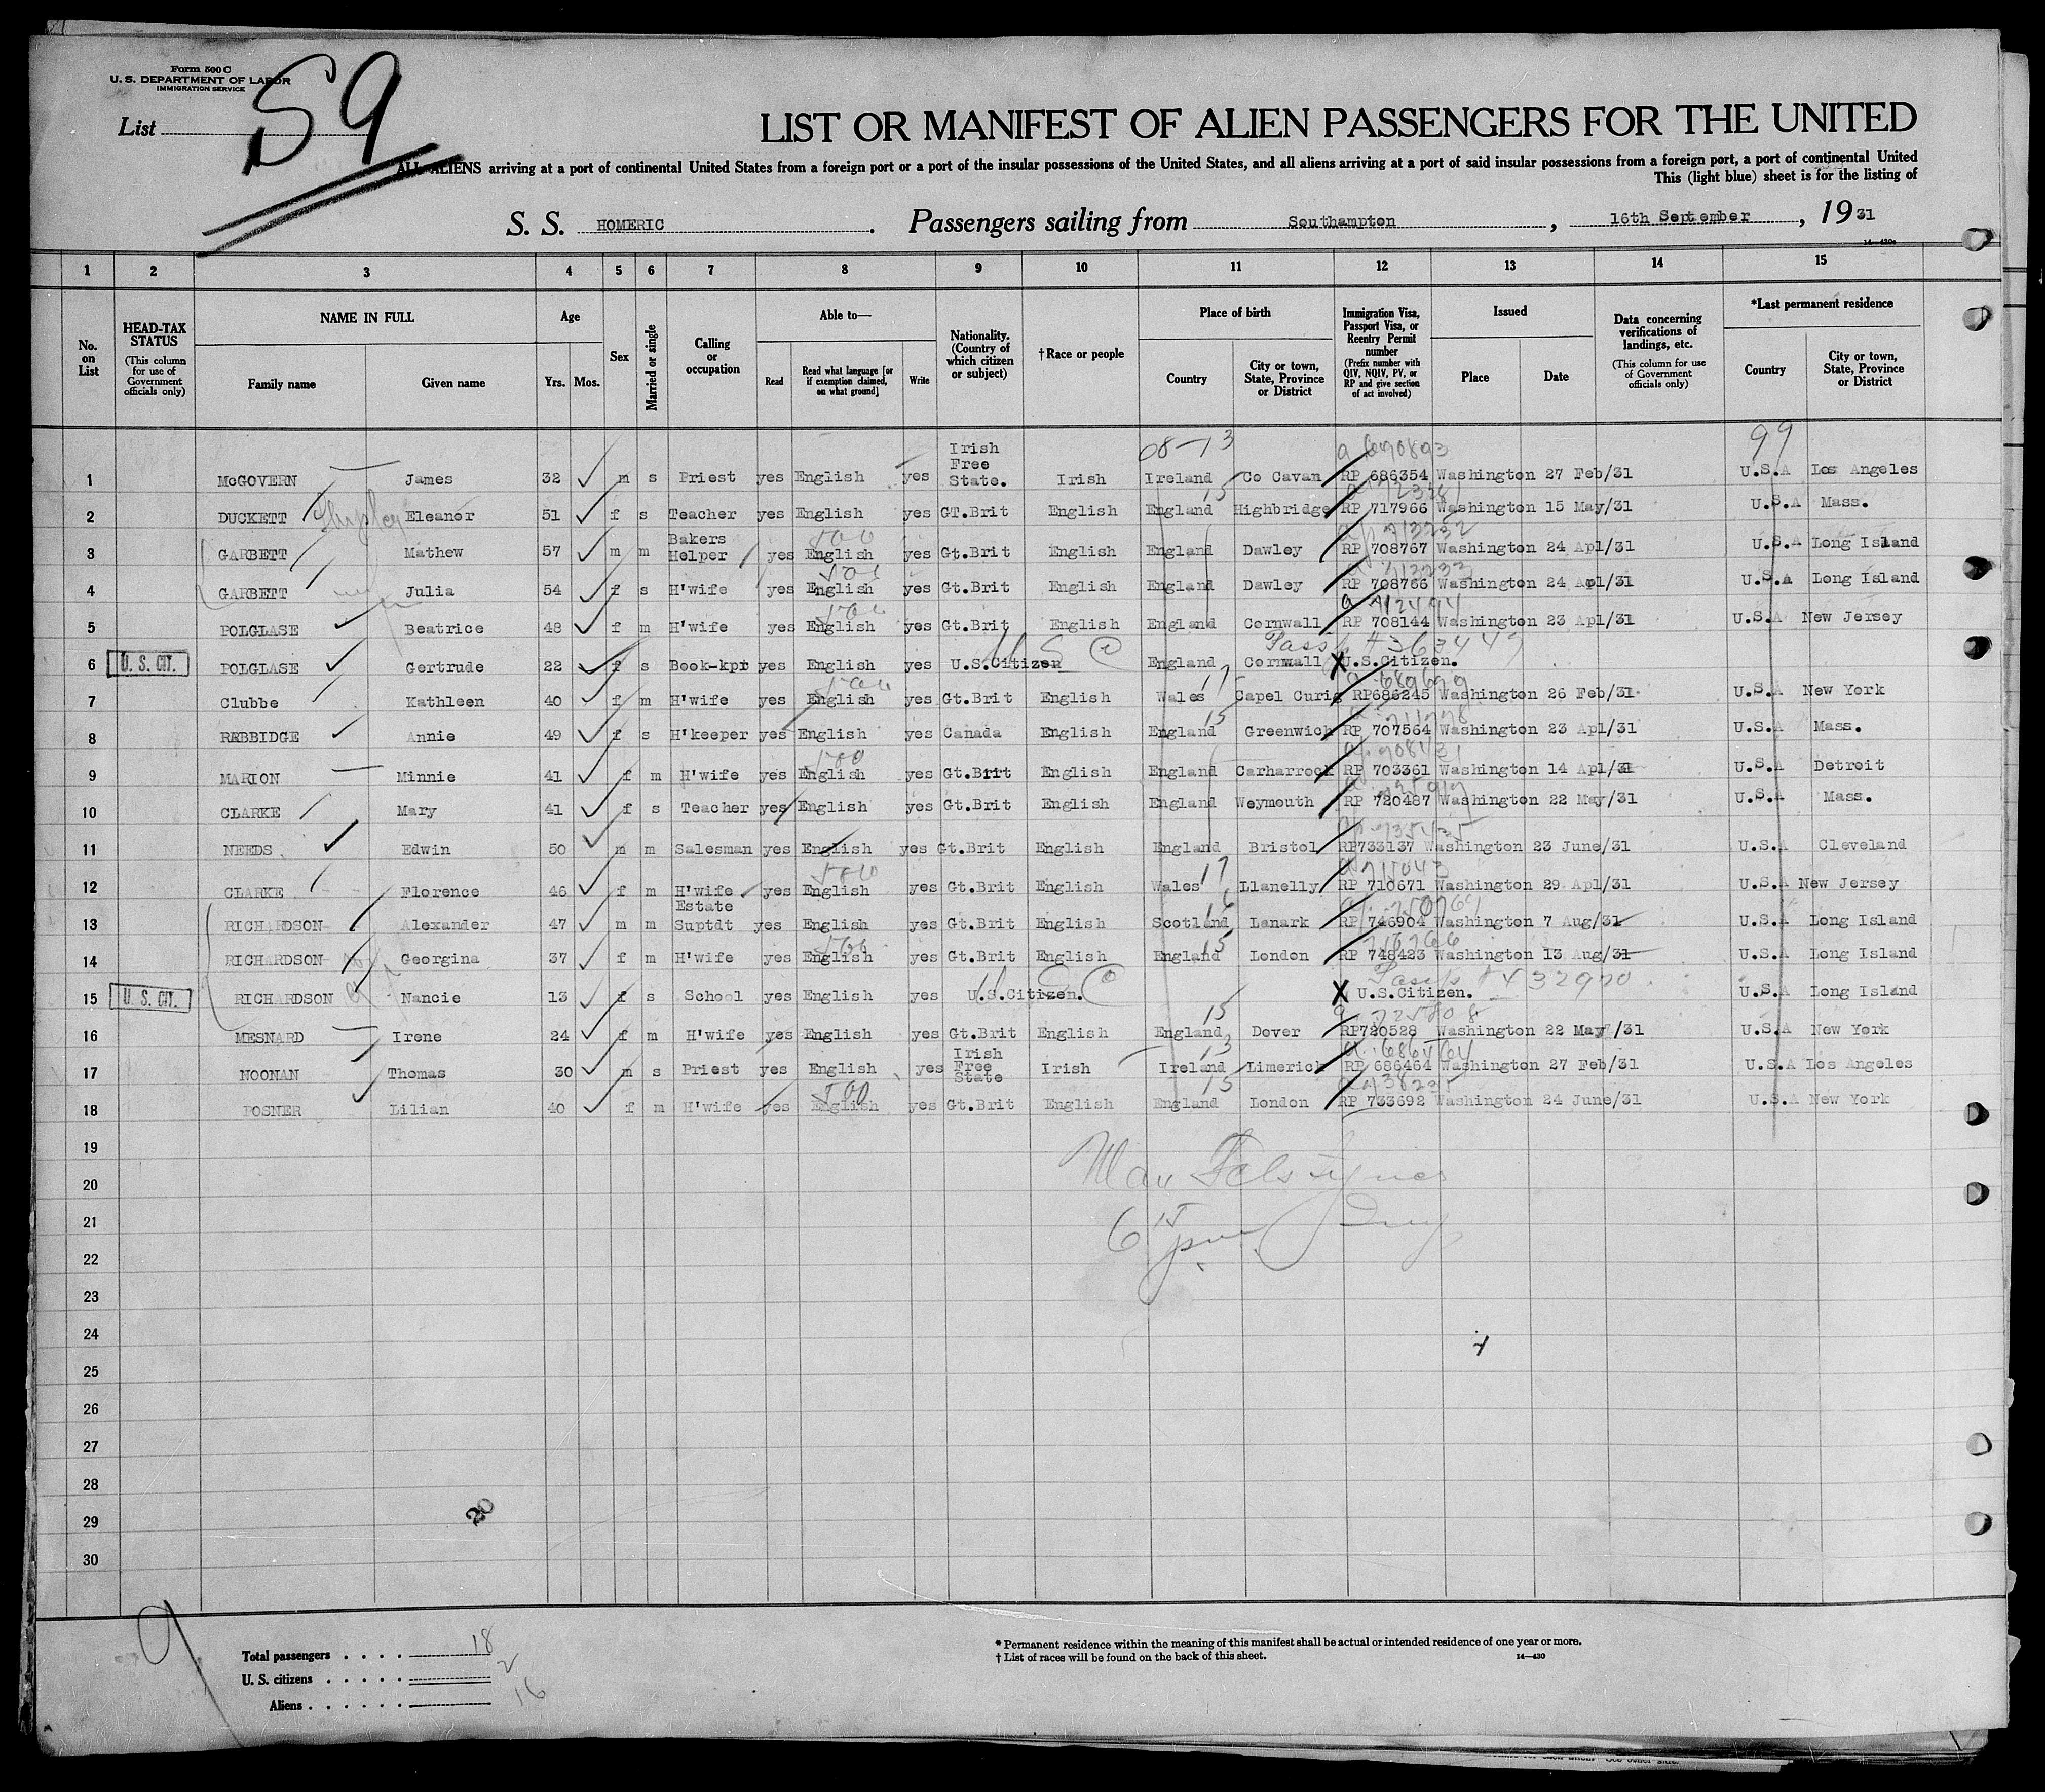 Form 500 C
U. S. DEPARTMENT OF LABOR
IMMIGRATION SERVICE
List 59
LIST OR MANIFEST OF ALIEN PASSENGERS FOR THE UNITED
ALL ALIENS arriving at a port of continental United States from a foreign port or a port of the insular possessions of the United States, and all aliens arriving at a port of said insular possessions from a foreign port, a port of continental United
This (light blue) sheet is for the listing of
S. S. HOMERIC. Passengers sailing from Southampton, 16th September, 1931
14—430c
1 2 3 4 5 6 7 8 9 10 11 12 13 14 15
No. on List
HEAD-TAX STATUS (This column for use of Government officials only)
NAME IN FULL
Family name Given name
Age
Yrs. Mos.
Sex
Married or single
Calling or occupation
Able to—
Read Read what language [or if exemption claimed, on what ground] Write
Nationality. (Country of which citizen or subject)
†Race or people
Place of birth
Country City or town, State, Province or District
Immigration Visa, Passport Visa, or Reentry Permit number (Prefix number with QIV, NQIV, PV, or RP and give section of act involved)
Issued
Place Date
Data concerning verifications of landings, etc. (This column for use of Government officials only)
*Last permanent residence
Country City or town, State, Province or District
08-13 a 690893 99
1 McGOVERN James 32 m s Priest yes English yes Irish Free State. Irish Ireland Co Cavan RP 686354 Washington 27 Feb/31 U.S.A Los Angeles
15
2 DUCKETT Eleanor 51 f s Teacher yes English yes GT.Brit English England Highbridge RP 717966 Washington 15 May/31 U.S.A Mass.
3 GARBETT Mathew 57 m m Bakers Helper yes English yes Gt.Brit English England Dawley RP 708767 Washington 24 Apl/31 U.S.A Long Island
4 GARBETT Julia 54 f s H'wife yes English yes Gt.Brit English England Dawley RP 708766 Washington 24 Apl/31 U.S.A Long Island
a 712494
5 POLGLASE Beatrice 48 f m H'wife yes English yes Gt.Brit English England Cornwall RP 708144 Washington 23 Apl/31 U.S.A New Jersey
U S C Pass # 363447
6 U. S. CIT. POLGLASE Gertrude 22 f s Book-kpr yes English yes U.S.Citizen England Cornwall X U.S.Citizen.
17 a. 689699
7 Clubbe Kathleen 40 f m H'wife yes English yes Gt.Brit English Wales Capel Curig RP686245 Washington 26 Feb/31 U.S.A New York
15
8 RABBIDGE Annie 49 f s H'keeper yes English yes Canada English England Greenwich RP 707564 Washington 23 Apl/31 U.S.A Mass.
9 MARION Minnie 41 f m H'wife yes English yes Gt.Brit English England Carharrock RP 703361 Washington 14 Apl/31 U.S.A Detroit
10 CLARKE Mary 41 f s Teacher yes English yes Gt.Brit English England Weymouth RP 720487 Washington 22 May/31 U.S.A Mass.
11 NEEDS Edwin 50 m m Salesman yes English yes Gt.Brit English England Bristol RP733137 Washington 23 June/31 U.S.A Cleveland
17 a 715043
12 CLARKE Florence 46 f m H'wife yes English yes Gt.Brit English Wales Llanelly RP 710671 Washington 29 Apl/31 U.S.A New Jersey
13 RICHARDSON Alexander 47 m m Estate Suptdt yes English yes Gt.Brit English Scotland Lanark RP 746904 Washington 7 Aug/31 U.S.A Long Island
15
14 RICHARDSON Georgina 37 f m H'wife yes English yes Gt.Brit English England London RP 748423 Washington 13 Aug/31 U.S.A Long Island
U S C Pass # 432970
15 U. S. CIT. RICHARDSON Nancie 13 f s School yes English yes U.S.Citizen. X U.S.Citizen. U.S.A Long Island
15
16 MESNARD Irene 24 f m H'wife yes English yes Gt.Brit English England Dover RP720528 Washington 22 May/31 U.S.A New York
13
17 NOONAN Thomas 30 m s Priest yes English yes Irish Free State Irish Ireland Limerick RP 686464 Washington 27 Feb/31 U.S.A Los Angeles
15
18 POSNER Lilian 40 f m H'wife yes English yes Gt.Brit English England London RP 733692 Washington 24 June/31 U.S.A New York
19
20
21
22
23
24
25
26
27
28
29
30
20
Total passengers 18
U. S. citizens 2
Aliens 16
* Permanent residence within the meaning of this manifest shall be actual or intended residence of one year or more.
† List of races will be found on the back of this sheet.
14—430